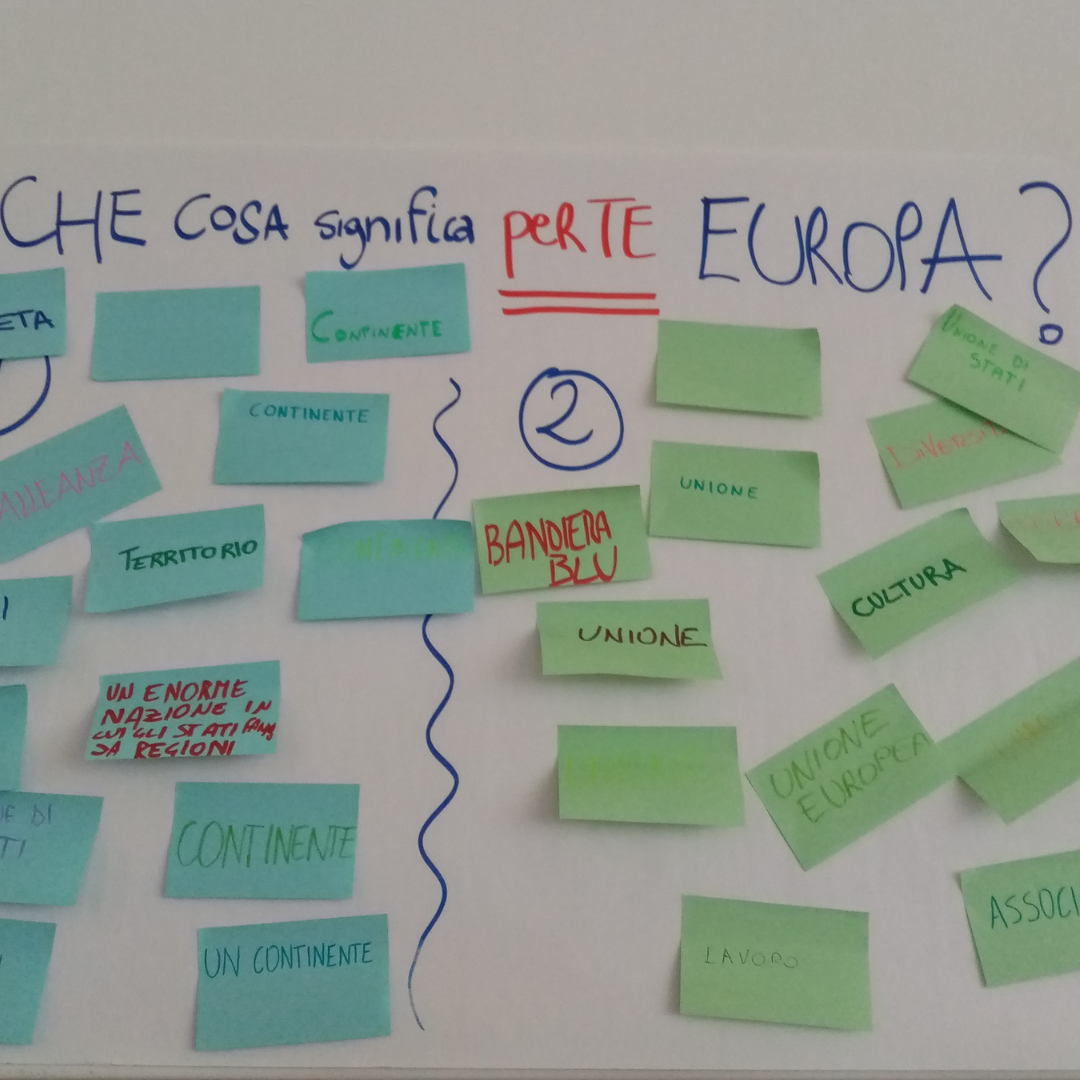 CHE COSA significa per TE EUROPA?
ETA
CONTINENTE
CONTINENTE
TERRITORIO
I
UN ENORME
NAZIONE IN
CUI GLI STATI
DA REGIONI
DI
TI
CONTINENTE
UN CONTINENTE
2
UNIONE DI
STATI
DIVERSIT
UNIONE
BANDIERA
BLU
CULTURA
UNIONE
UNIONE
EUROPEA
ASSOCI
LAVORO